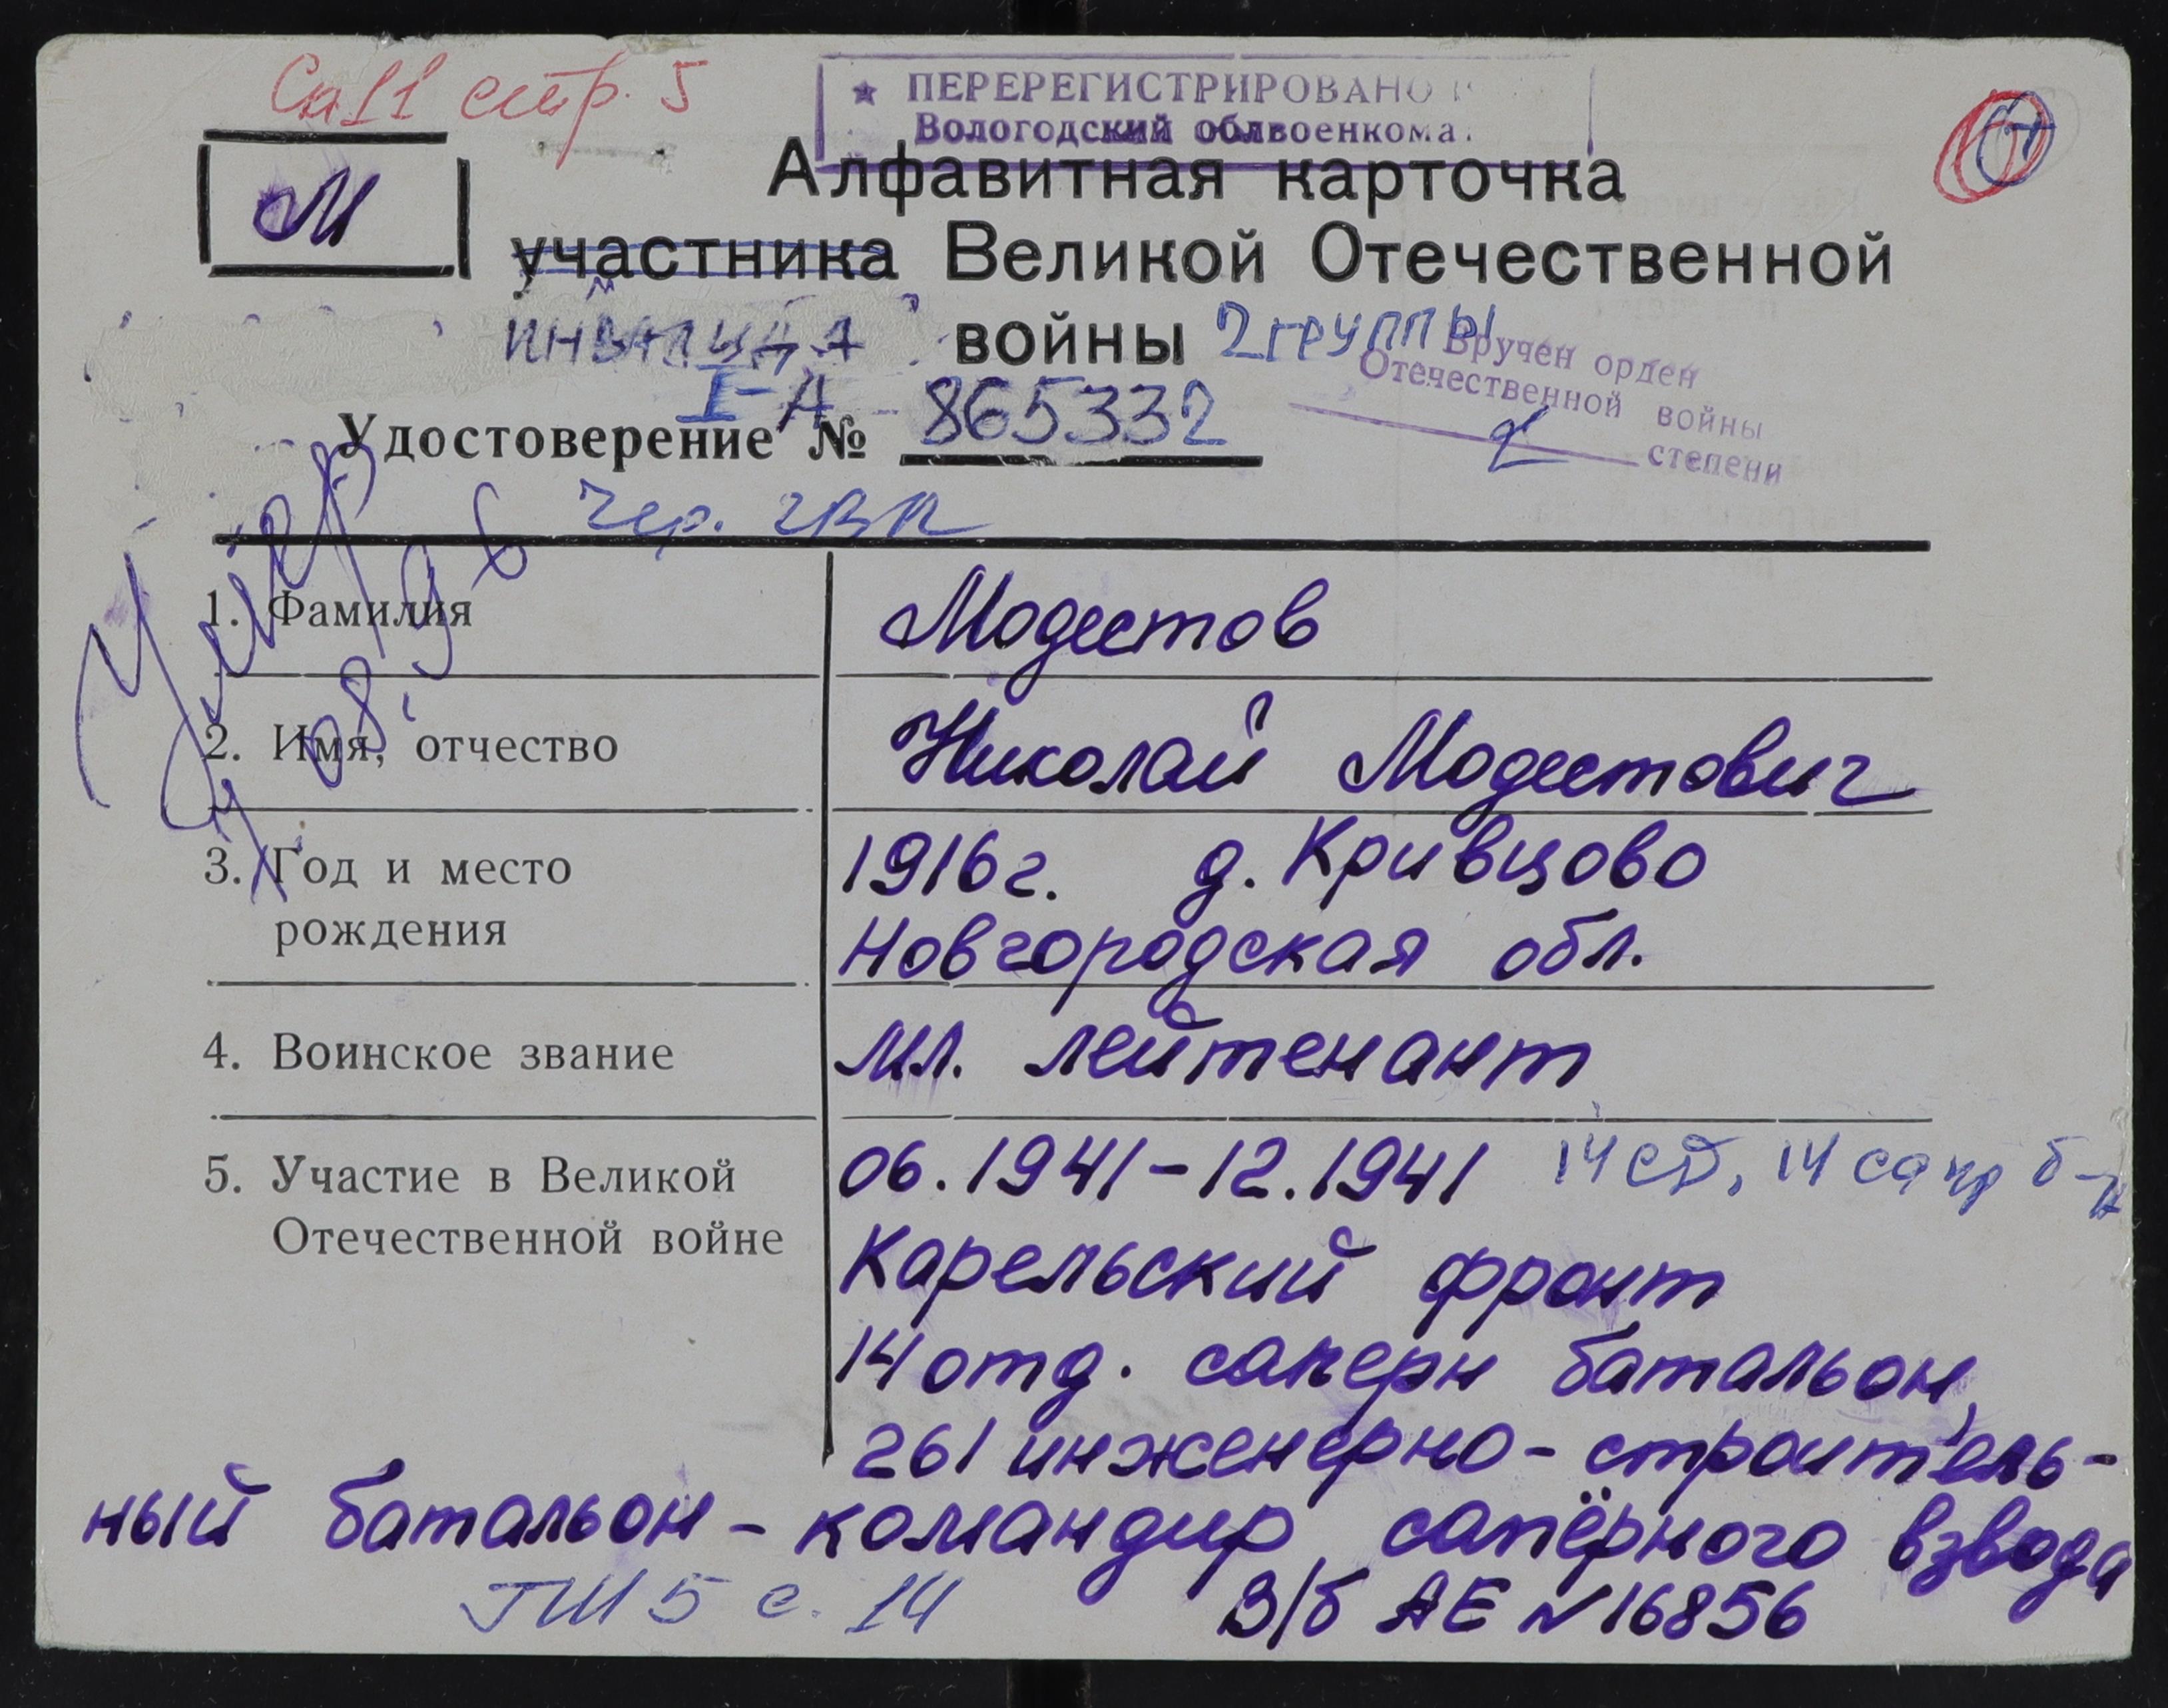 Сп 11 стр. 5
ПЕРЕРЕГИСТРИРОВАНО
Вологодский облвоенкома
М
Алфавитная карточка
участника Великой Отечественной
инвалида войны 2 группы
Вручен орден
Отечественной войны
2 степени
I-А
Удостоверение № 865332
Чер. ГВК
Умер
08.96
1. Фамилия Модестов
2. Имя, отчество Николай Модестович
3. Год и место 1916г. д. Кривцово
рождения Новгородская обл.
4. Воинское звание мл. лейтенант
5. Участие в Великой 06.1941-12.1941 14 СД, 14 сапр б-н
Отечественной войне Карельский фронт
14 отд. саперн батальон,
261 инженерно-строитель-
ный батальон - командир сапёрного взвода
5 с. 14 В/б АЕ N 16856